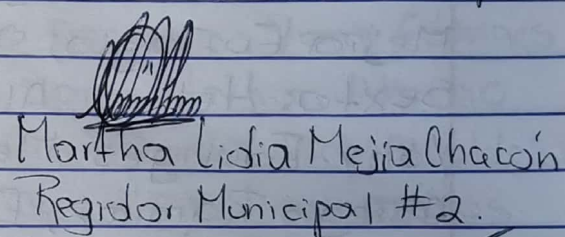 Martha Lidia Mejia Chacón
Regidor Municipal #2.